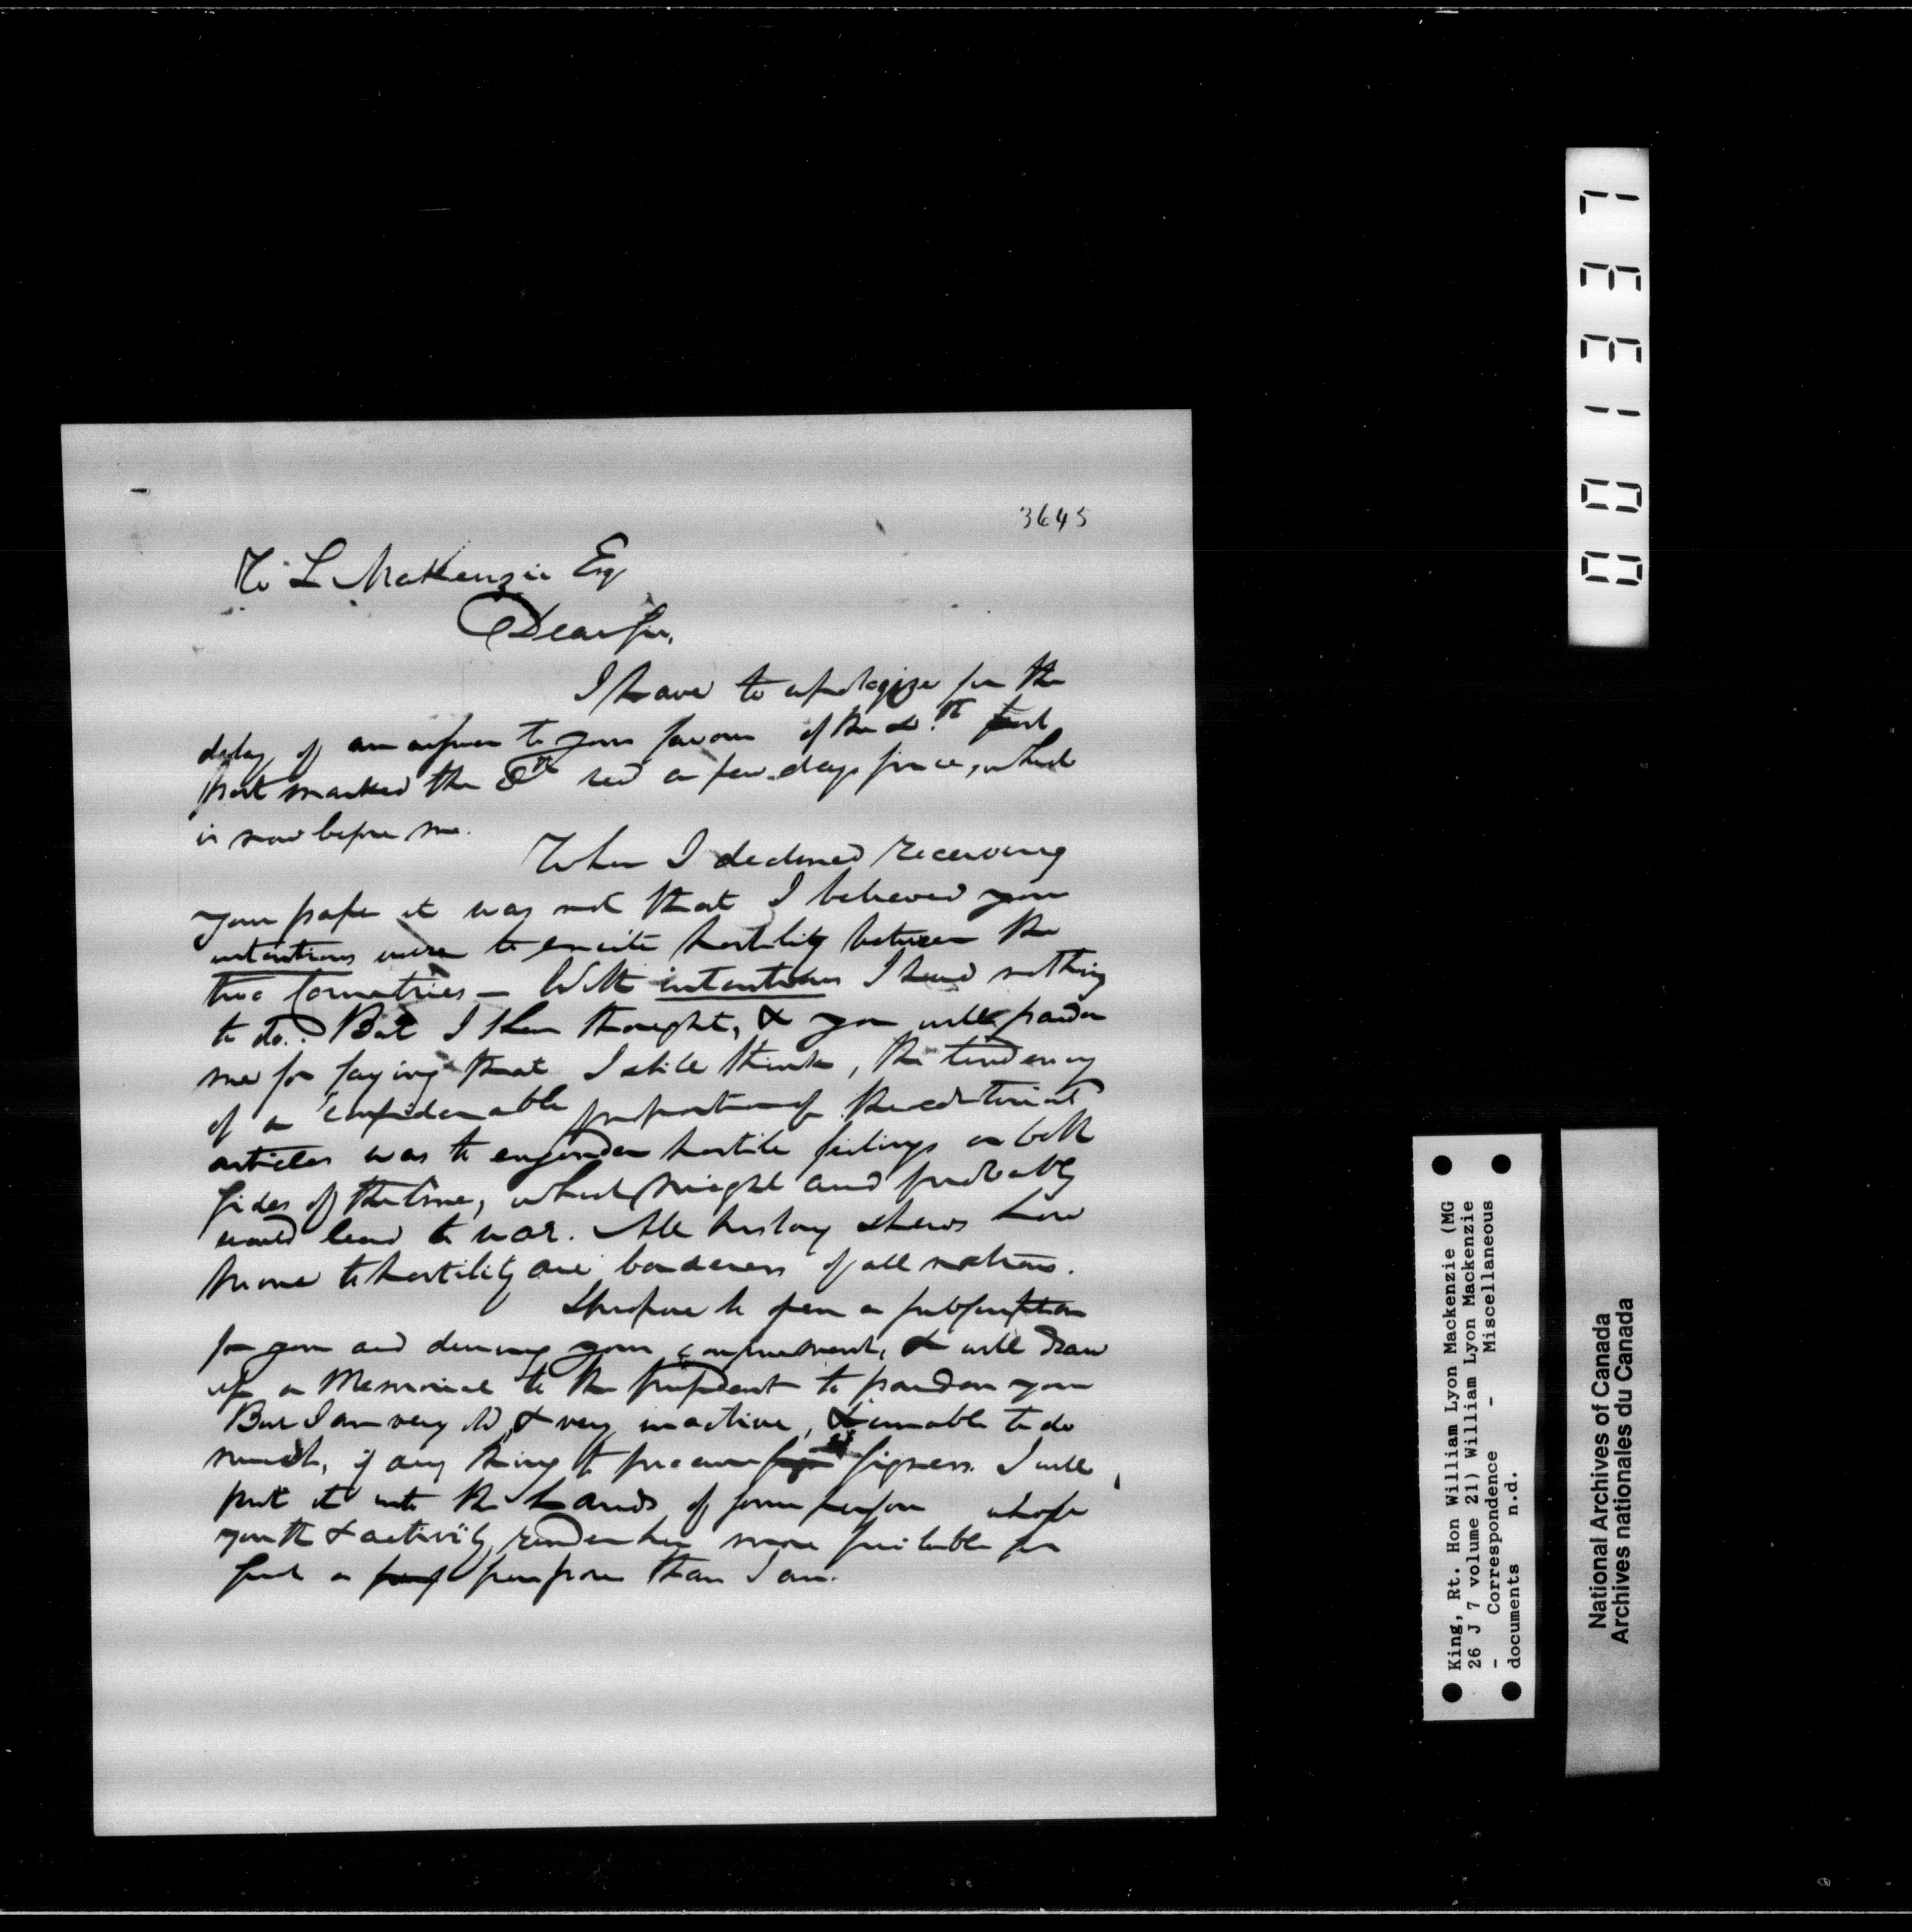 3645
W L MacKenzie Esq
Dear Sir,
I have to apologize for the
delay of an answer to your favour of the
post marked the 8th recd a few days since, which
is now before me.
When I declined receiving
your paper it was not that I believed your
intentions were to excite hostility between the
two Countries — With intentions I had nothing
to do. But I then thought, & you will pardon
me for saying that I still think, the tendency
of a considerable proportion of the editorial
articles was to engender hostile feelings on both
sides of the line, which might and probably
would lead to war. All history shews how
prone to hostility are borderers of all nations.
I propose to open a subscription
for you and during your confinement, & will draw
up a Memorial to the President to pardon you
But I am very old, & very inactive, & unable to do
much, if any thing to procure signers. I will
put it into the hands of some person whose
youth & activity render him more suitable for
such a purpose than I am.
001337
King, Rt. Hon William Lyon Mackenzie (MG
26 J 7 volume 21) William Lyon Mackenzie
- Correspondence - Miscellaneous
documents n.d.
National Archives of Canada
Archives nationales du Canada